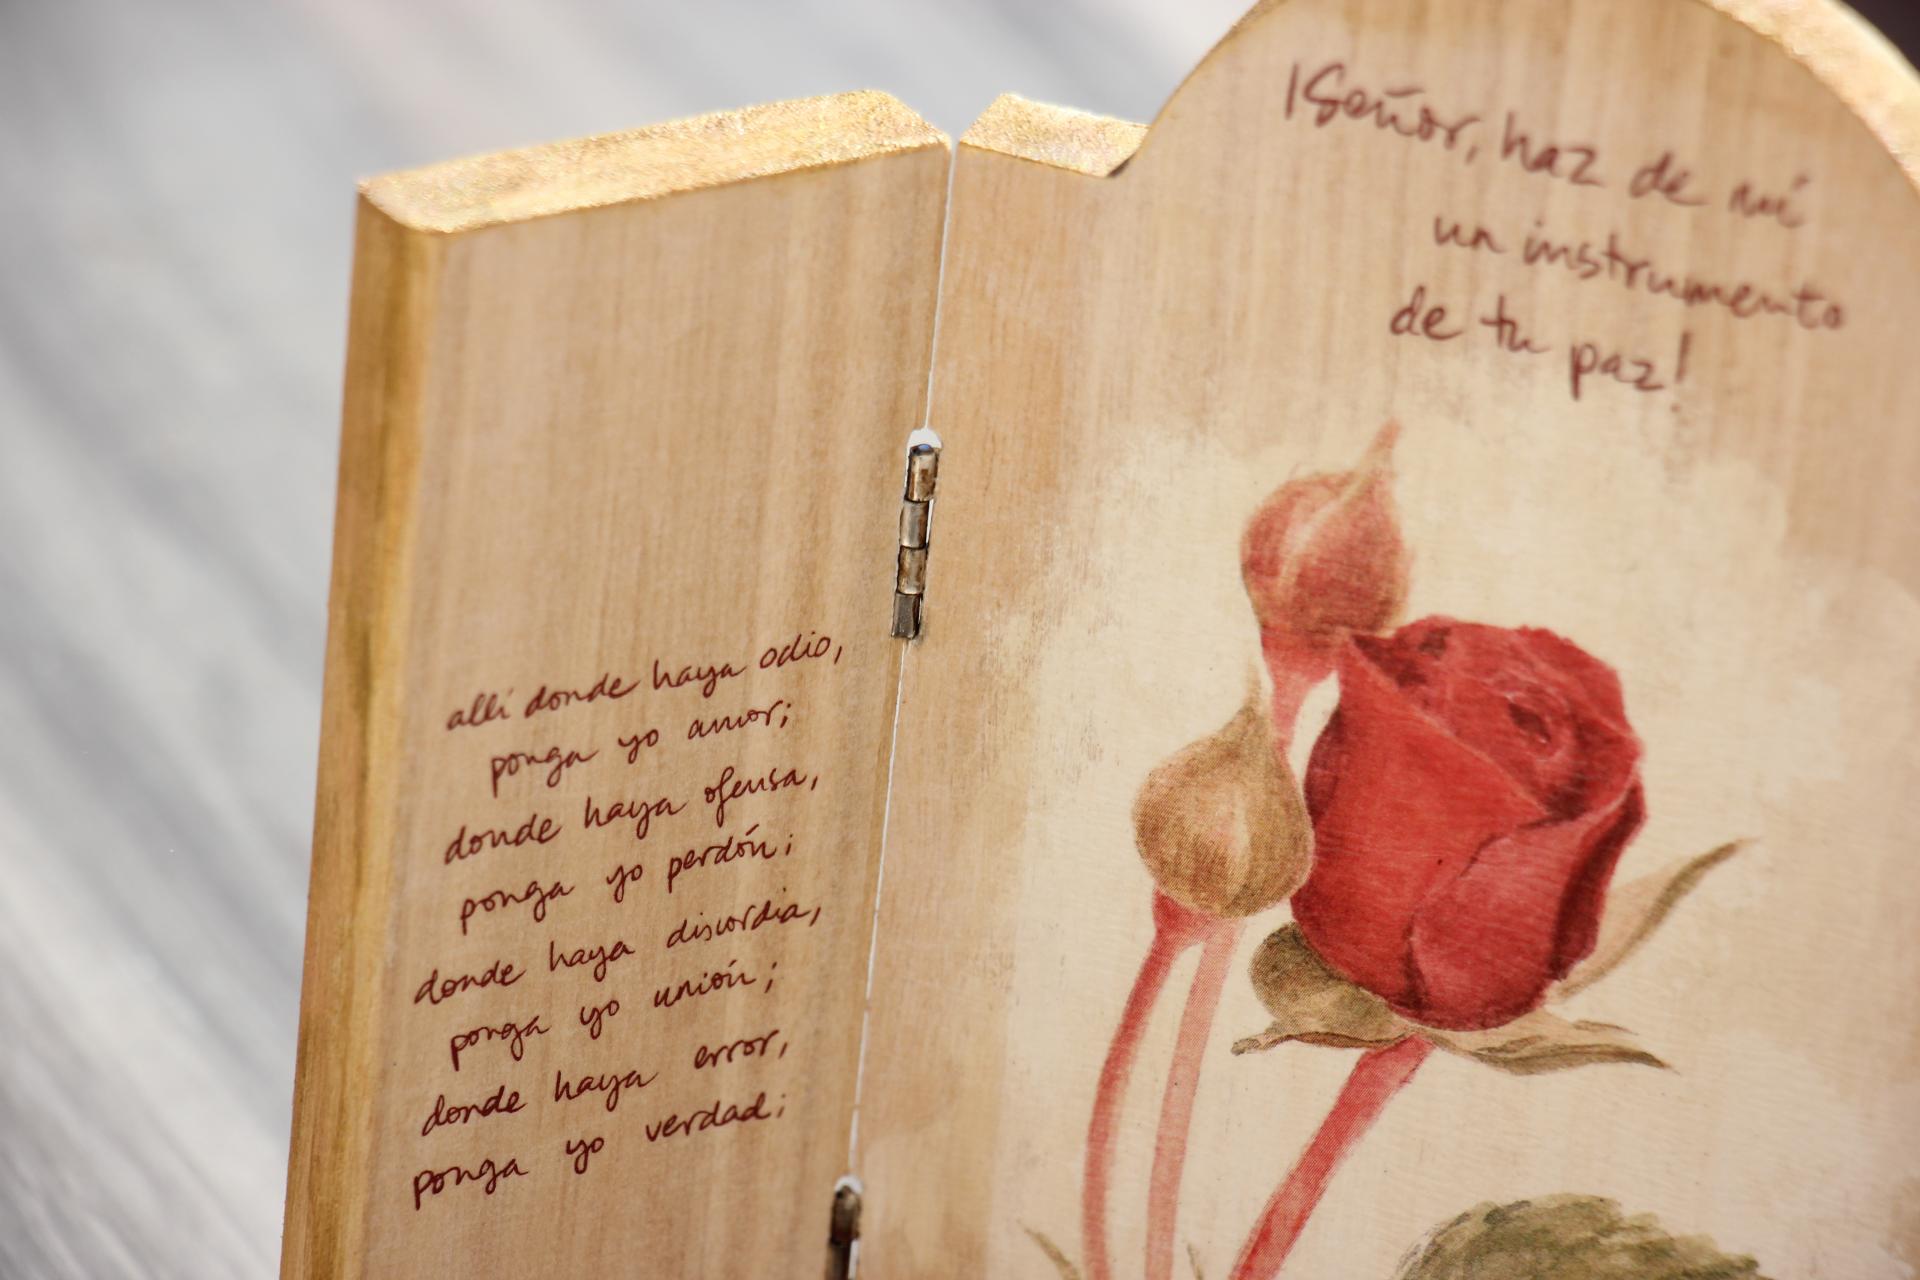 ¡Señor, haz de mí
un instrumento
de tu paz!
allí donde haya odio,
ponga yo amor;
donde haya ofensa,
ponga yo perdón;
donde haya discordia,
ponga yo unión;
donde haya error,
ponga yo verdad;